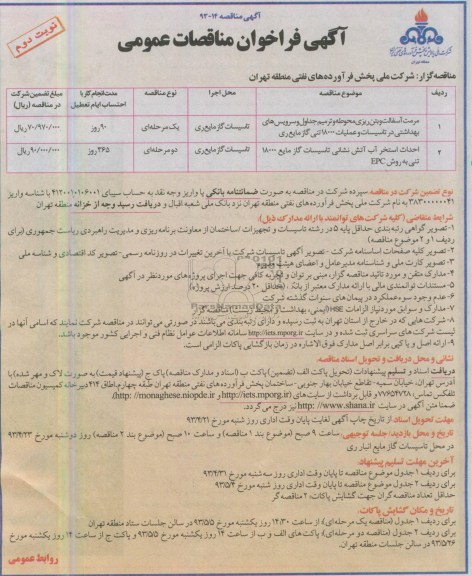 آگهی مناقصه ۱۴-۹۳
نوبت دوم
آگهی فراخوان مناقصات عمومی
مناقصه گزار: شرکت ملی پخش فرآورده‌های نفتی منطقه تهران
ردیف
موضوع مناقصه
محل اجرا
نوع مناقصه
مدت انجام کار با احتساب ایام تعطیل
مبلغ تضمین شرکت در مناقصه (ریال)
۱
مرمت آسفالت و بتن ریزی محوطه و ترمیم جداول و سرویس‌های
بهداشتی در تاسیسات و عملیات ۱۸۰۰۰ تنی گاز مایع ری
تاسیسات گاز مایع ری
یک مرحله‌ای
۹۰ روز
۷۰/۹۷۰/۰۰۰ ریال
۲
احداث استخر آب آتش نشانی تاسیسات گاز مایع ۱۸۰۰۰
تنی به روش EPC
تاسیسات گاز مایع ری
دو مرحله‌ای
۳۶۵ روز
۹۰/۰۰۰/۰۰۰ ریال
نوع تضمین شرکت در مناقصه سپرده شرکت در مناقصه به صورت ضمانتنامه بانکی یا واریز وجه نقد به حساب سیبای ۴۱۲۰۰۱۰۱۰۶۰۰۱ با شناسه واریز
به نام شرکت ملی پخش فرآورده‌های نفتی منطقه تهران نزد بانک ملی شعبه اقبال و دریافت رسید وجه از خزانه منطقه تهران
شرایط متقاضی (کلیه شرکت‌های توانمند با ارائه مدارک ذیل):
۱- تصویر گواهی رتبه‌بندی حداقل پایه ۵ در رشته تاسیسات و تجهیزات / ساختمان از معاونت برنامه‌ریزی و مدیریت راهبردی ریاست جمهوری (برای
ردیف ۱ و ۲ موضوع مناقصه)
۲- تصویر کلیه صفحات اساسنامه شرکت - تصویر آگهی تاسیسات شرکت با آخرین تغییرات در روزنامه رسمی - تصویر کد اقتصادی و شناسه ملی
۳- تصویر کارت ملی و شناسنامه مدیرعامل و اعضای هیئت مدیره
۴- مدارک متقن و مورد تائید مناقصه گزار، مبنی بر توان و تجربه کافی جهت اجرای پروژه‌های مورد نظر در آگهی
۵- مستندات توانمندی مالی با ارائه مدارک معتبر از بانک (حداقل ۲۰ درصد ارزش پروژه)
۶- عدم وجود سوء عملکرد در پیمان های سنوات گذشته شرکت
۷- مدارک و سوابق مورد نیاز الزامات HSE (ایمنی، بهداشت و محیط زیست) مناقصه گزار
۸- شرکت‌هایی که در خارج از استان تهران به ثبت رسیده و دارای رتبه بندی می باشند در صورتی می توانند در مناقصه شرکت نمایند که اسامی آنها در
لیست شرکت‌های سراسری ثبت شده و در سایت http://iets.mporg.ir سامانه اطلاعات عوامل نظام فنی و اجرایی کشور موجود باشد.
۹- ارائه اصل و یا کپی برابر اصل مدارک فوق الاشاره در زمان بازگشایی پاکات الزامی است.
نشانی و محل دریافت و تحویل اسناد مناقصه:
دریافت اسناد و تسلیم پیشنهادات (تحویل پاکت الف (تضمین) پاکت ب (اسناد و مدارک مناقصه) پاک ج (پیشنهاد قیمت) به صورت لاک و مهر شده) با
آدرس تهران، خیابان سمیه - تقاطع خیابان بهار جنوبی - ساختمان پخش فرآورده های نفتی منطقه تهران طبقه چهارم، اطاق ۴۱۴ دبیرخانه کمیسیون مناقصات
تلفکس تماس: ۷۷۶۵۴۷۲۸ و قابل برداشت از سایت‌های (http://iets.mporg.ir و http://monaghese.niopdc.ir)
ضمنا متن آگهی در سایت http://www.shana.ir نیز درج می گردد.
مهلت تحویل اسناد: از تاریخ چاپ آگهی لغایت پایان وقت اداری روز شنبه مورخ ۹۳/۴/۲۱
تاریخ و محل بازدید/ جلسه توجیهی: ساعت ۹ صبح (موضوع بند ۱ مناقصه) و ساعت ۱۰ صبح (موضوع بند ۲ مناقصه) روز دوشنبه مورخ ۹۳/۴/۲۳
در محل تاسیسات گاز مایع انبار ری
آخرین مهلت تسلیم پیشنهاد:
برای ردیف ۱ جدول موضوع مناقصه تا پایان وقت اداری روز سه شنبه مورخ ۹۳/۴/۳۱
برای ردیف ۲ جدول موضوع مناقصه تا پایان وقت اداری روز شنبه مورخ ۹۳/۵/۴
حداقل تعداد مناقصه گران جهت گشایش پاکات: ۲ مناقصه گر
تاریخ و مکان گشایش پاکات:
برای ردیف ۱ جدول (مناقصه یک مرحله‌ای): از ساعت ۱۴/۳۰ روز یکشنبه مورخ ۹۳/۵/۵ در سالن جلسات ستاد منطقه تهران
برای ردیف ۲ جدول (مناقصه دو مرحله‌ای): پاکت های الف و ب از ساعت ۱۴ روز یکشنبه مورخ ۹۳/۵/۵ و پاکت ج از ساعت ۱۴ روز یکشنبه مورخ
۹۳/۵/۲۶ در سالن جلسات منطقه تهران.
روابط عمومی